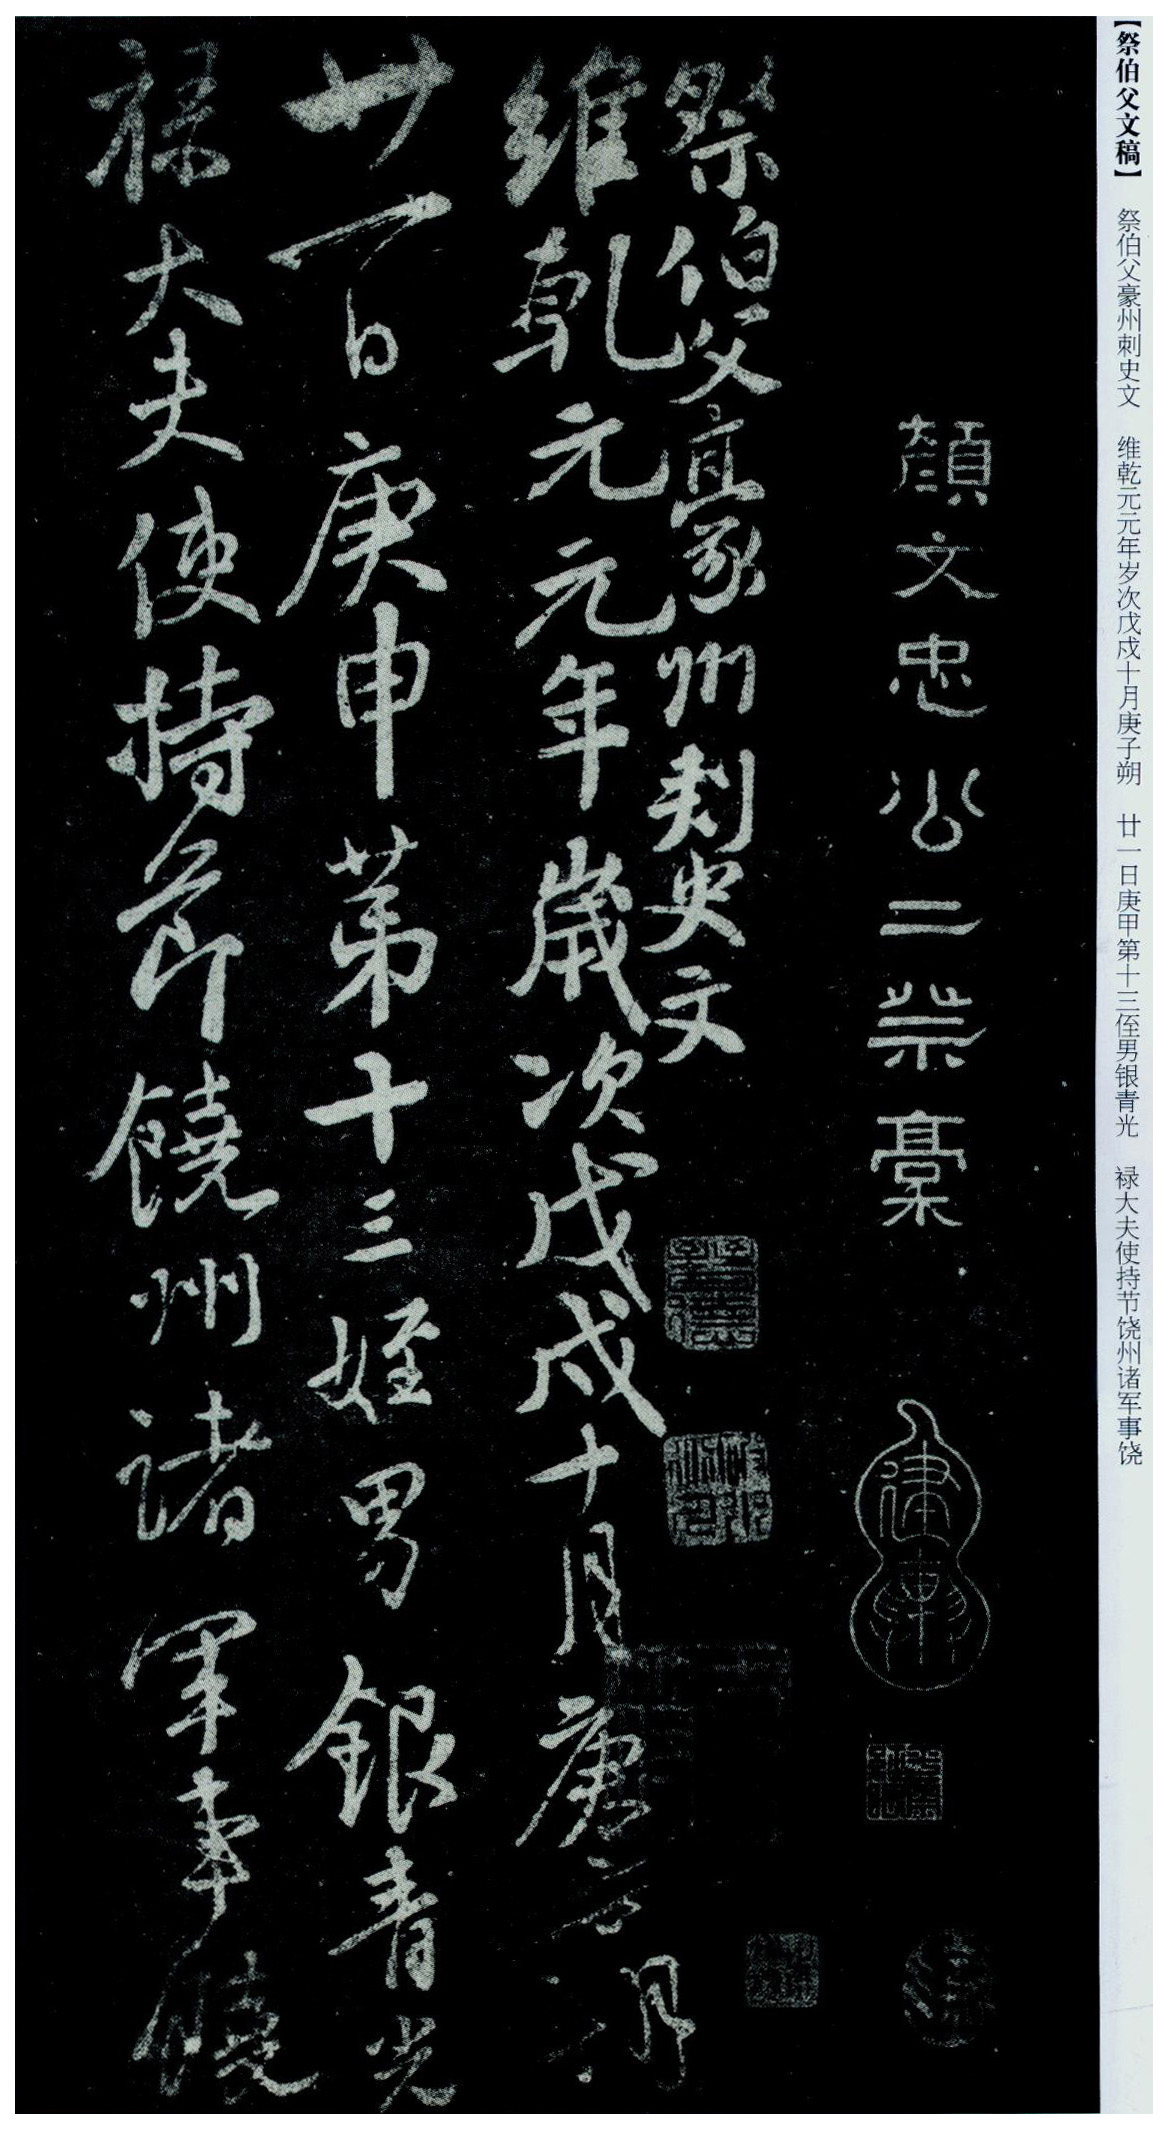 【祭伯父文稿】 祭伯父豪州刺史文 维乾元元年岁次戊戍十月庚子朔 廿一日庚甲第十三侄男银青光 禄大夫使持节饶州诸军事饶
顔文忠公二祭稾
祭伯父豪州刾史文
維乾元元年歲次戊戌十月庚子朔
廿一日庚申苐十三姪男銀青光
祿大夫使持節饒州諸軍事饒